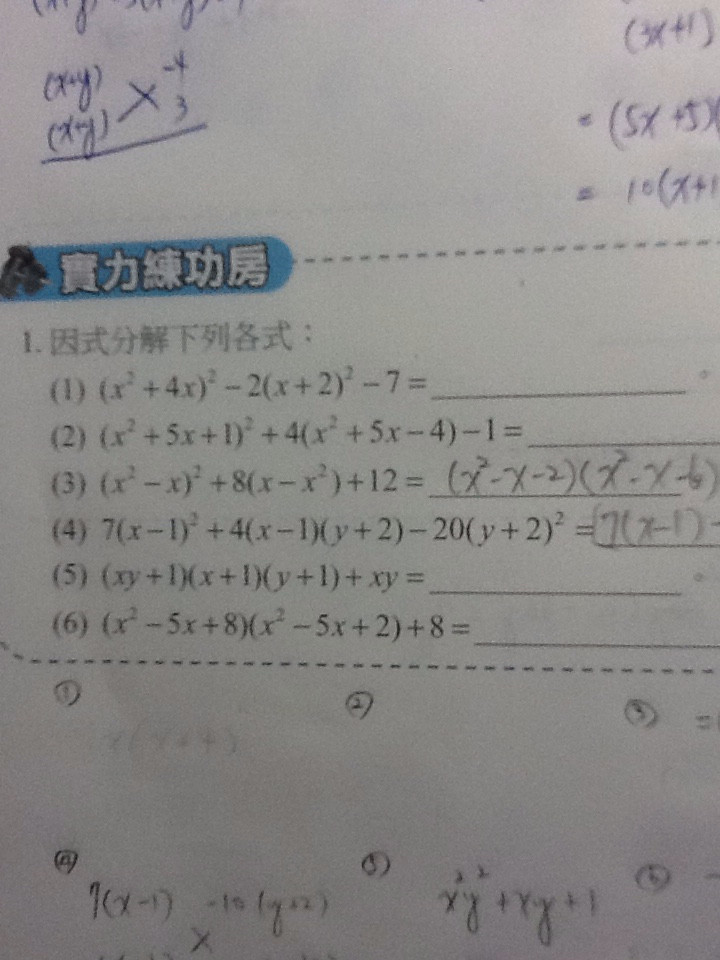 (3x+1)
(x+y) -4
(x+y) 3
= (5x+5)(
= 10(x+1
實力練功房
1. 因式分解下列各式：
(1) (x²+4x)²-2(x+2)²-7=____。
(2) (x²+5x+1)²+4(x²+5x-4)-1=____
(3) (x²-x)²+8(x-x²)+12= (x²-x-2)(x²-x-6)
(4) 7(x-1)²+4(x-1)(y+2)-20(y+2)² =[7(x-1)-
(5) (xy+1)(x+1)(y+1)+xy=____。
(6) (x²-5x+8)(x²-5x+2)+8=____
① ② ③ =
x(x+4)
④ ⑤ ⑥ -
7(x-1) -10(y+2) x²y²+xy+1